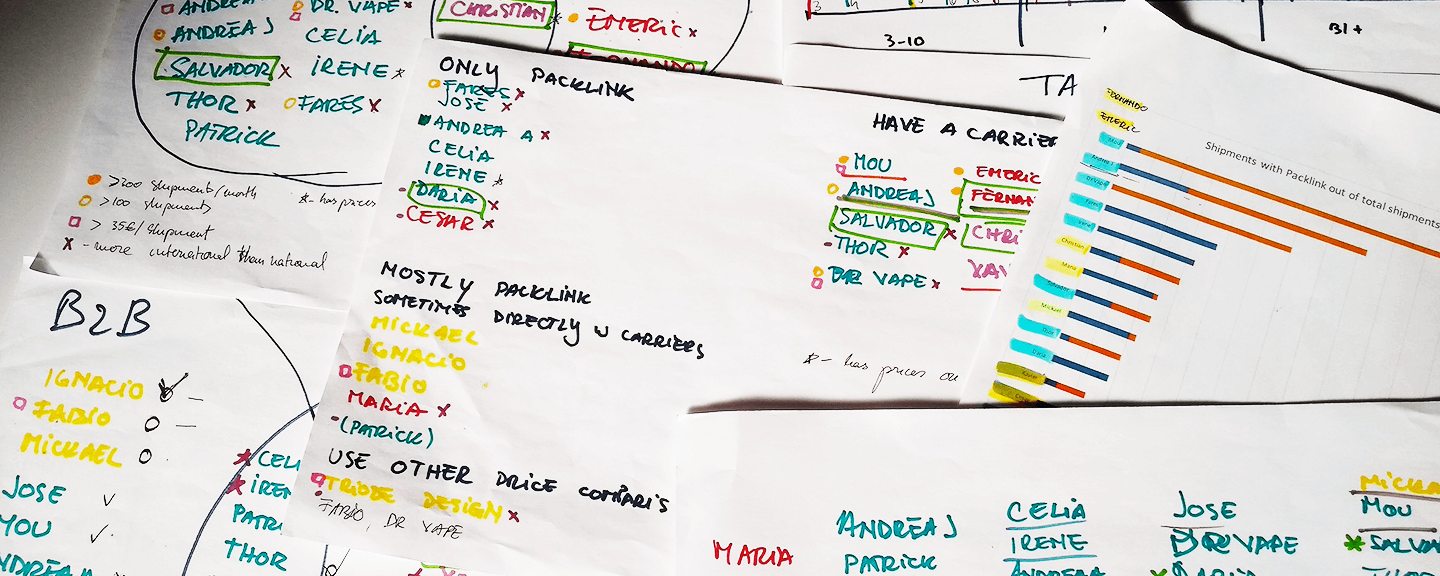 ANDREA
DR. VAPE x
ANDREA J
CELIA
SALVADOR x
IRENE *
THOR x
FARES x
PATRICK
>200 shipment/month
>100 shipments
> 35€/shipment
x - more international than national
* - has prices
CHRISTIAN
EMERIC x
FERNANDO
3-10
B1 +
ONLY PACKLINK
FARES x
JOSE x
ANDREA A x
CELIA
IRENE *
- DARIA x
- CESAR x
MOSTLY PACKLINK
SOMETIMES DIRECTLY W CARRIERS
MICKAEL
IGNACIO
FABIO
MARIA x
- (PATRICK)
USE OTHER PRICE COMPARIS
TRIODE DESIGN x
FABIO, DR VAPE
TA
HAVE A CARRIER
MOU
EMERIC
ANDREA J
FERNAN
SALVADOR x
CHRI
- THOR x
XAV
DR VAPE x
* - has prices on
FERNANDO
EMERIC
Shipments with Packlink out of total shipments
Christian
Maria
Salvador
Mickael
B2B
IGNACIO
FABIO
MICKAEL
JOSE ✓
MOU ✓
ANDREA A
CELI
IREN
PATRI
THOR
MARIA
ANDREA J
PATRICK
CELIA
IRENE
ANDREA A
JOSE
DR VAPE
DARIA
MICKA
MOU
SALVA
THOR